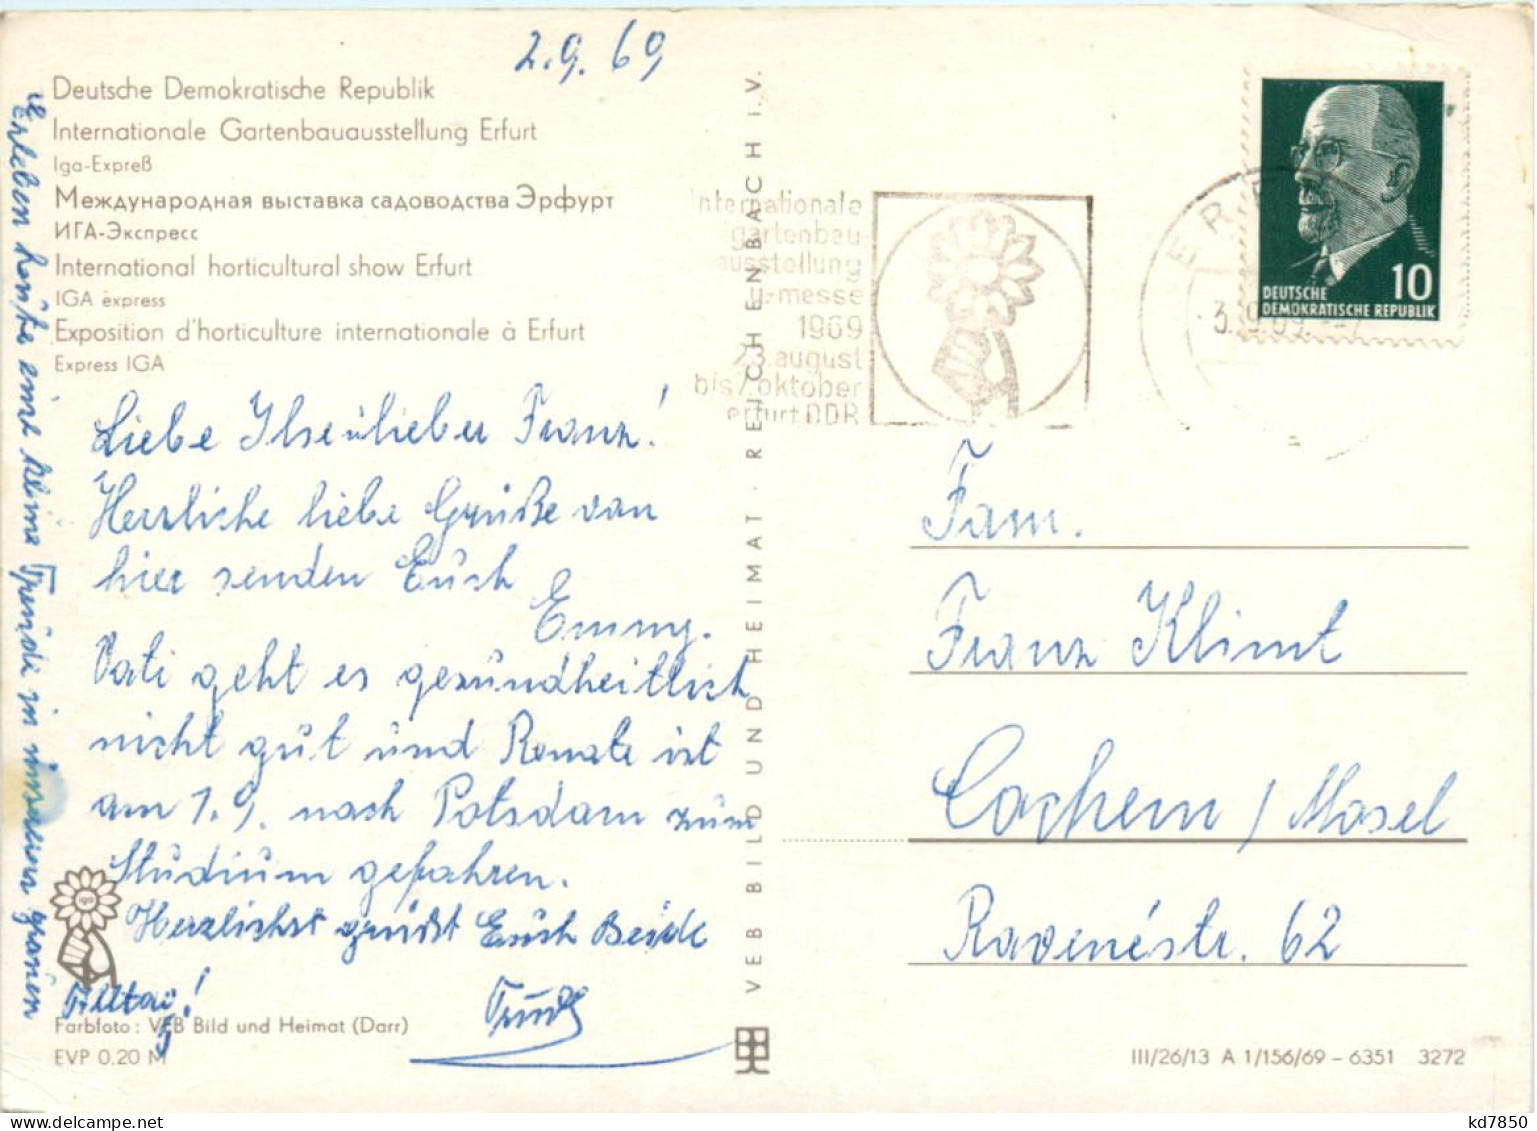 2.9.69
Deutsche Demokratische Republik
Internationale Gartenbauausstellung Erfurt
Iga-Expreß
Международная выставка садоводства Эрфурт
ИГА-Экспресс
International horticultural show Erfurt
IGA express
Exposition d'horticulture internationale à Erfurt
Express IGA
Liebe Ilse u. lieber Franz!
Herzliche liebe Grüße von
hier senden Euch
Emmy.
Vati geht es gesundheitlich
nicht gut und Renate ist
am 1.9. nach Potsdam zum
Studium gefahren.
Herzlichst grüßt Euch Beide
Trudi
Erleben heute eine kleine Freude in unserem grauen
Alltag!
iga
Farbfoto: VEB Bild und Heimat (Darr)
EVP 0.20 M
VEB BILD UND HEIMAT · REICHENBACH i. V.
internationale
gartenbau-
ausstellung
u.-messe
1969
23. august
bis 7. oktober
erfurt DDR
3.-9.69.
10
DEUTSCHE
DEMOKRATISCHE REPUBLIK
Fam.
Franz Klimt
Cochem / Mosel
Ravenéstr. 62
III/26/13 A 1/156/69 – 6351 3272
kd7850